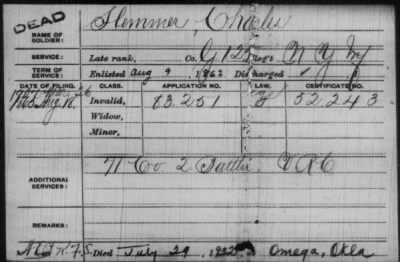 DEAD
NAME OF SOLDIER: Flemmer, Charles
SERVICE: Late rank, Co. G, 125 Reg't N Y Inf
TERM OF SERVICE: Enlisted Aug 9, 1862 Discharged
DATE OF FILING. CLASS. APPLICATION NO. LAW. CERTIFICATE NO.
Aug. 18, Invalid, 83.251 52.243
Widow,
Minor,
ADDITIONAL SERVICES: 71 Co 2 Battl. V R C
REMARKS:
Died July 29, 1922 Omega, Okla